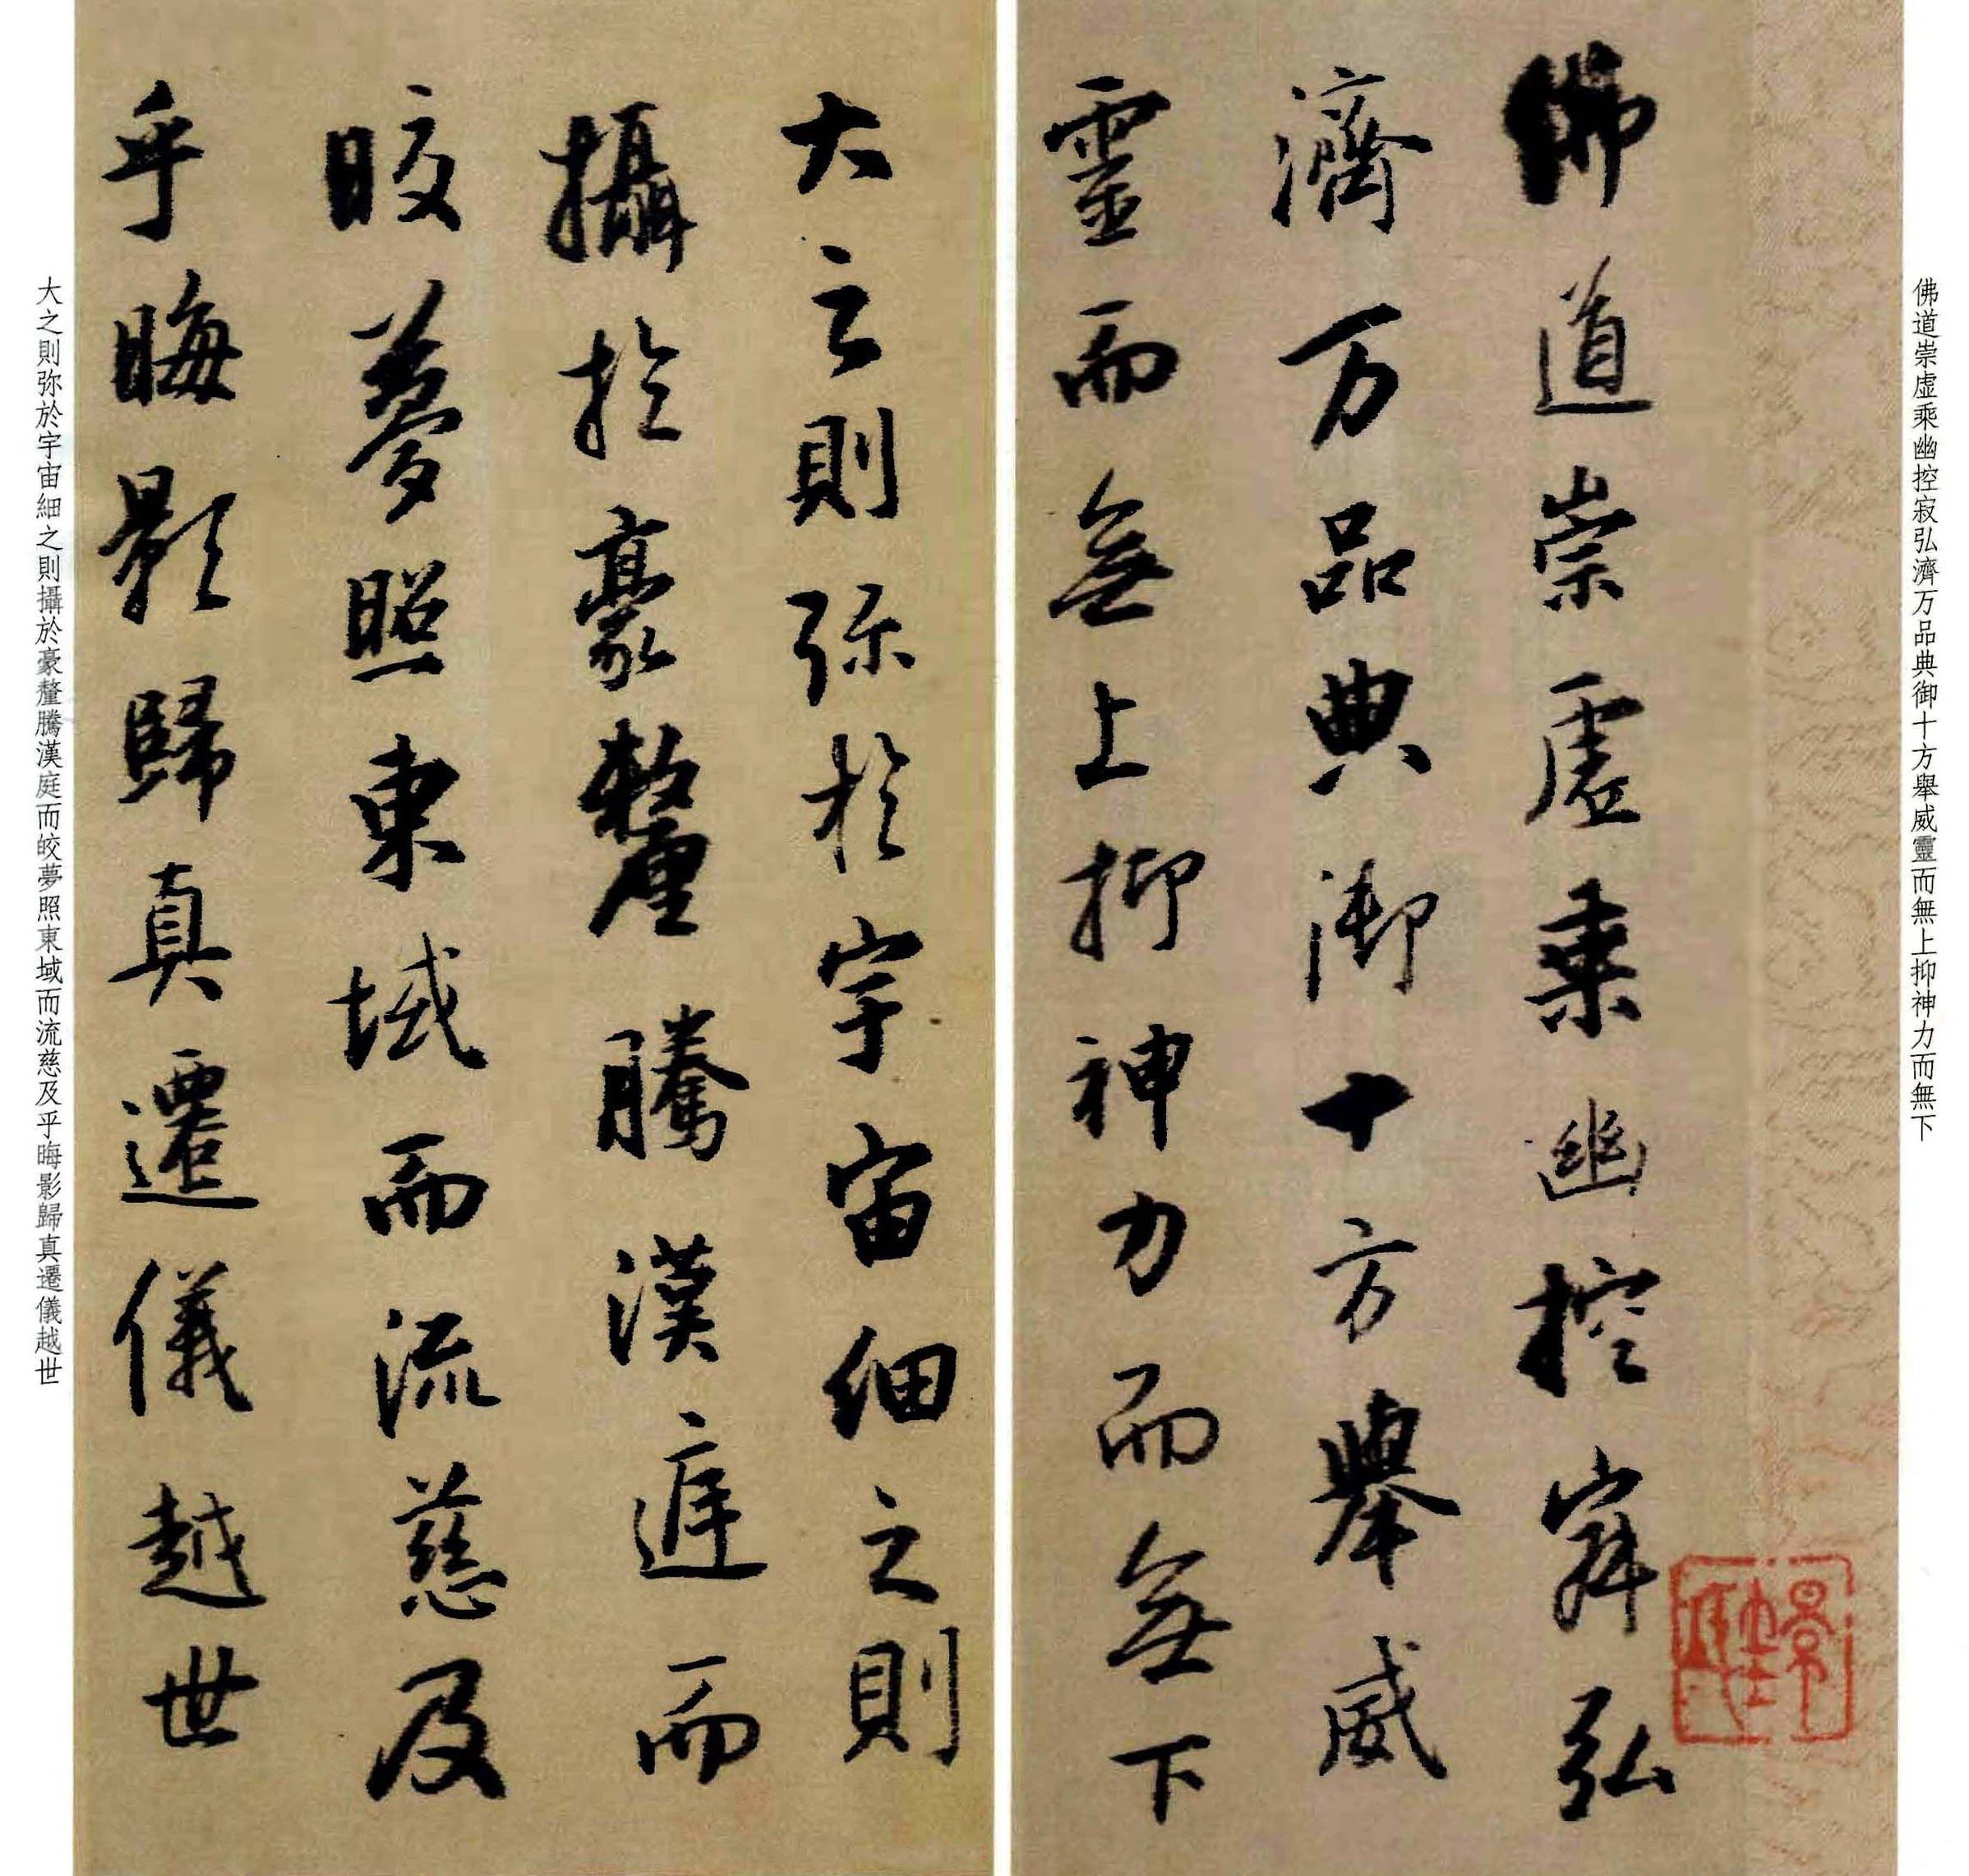 佛道崇虛乘幽控寂弘濟万品典御十方舉威靈而無上抑神力而無下
佛道崇虛乘幽控寂弘
濟万品典御十方舉威
靈而無上抑神力而無下
大之則弥於宇宙細之則
攝於豪釐騰漢庭而
皎夢照東域而流慈及
乎晦影歸真遷儀越世
大之則弥於宇宙細之則攝於豪釐騰漢庭而皎夢照東域而流慈及乎晦影歸真遷儀越世